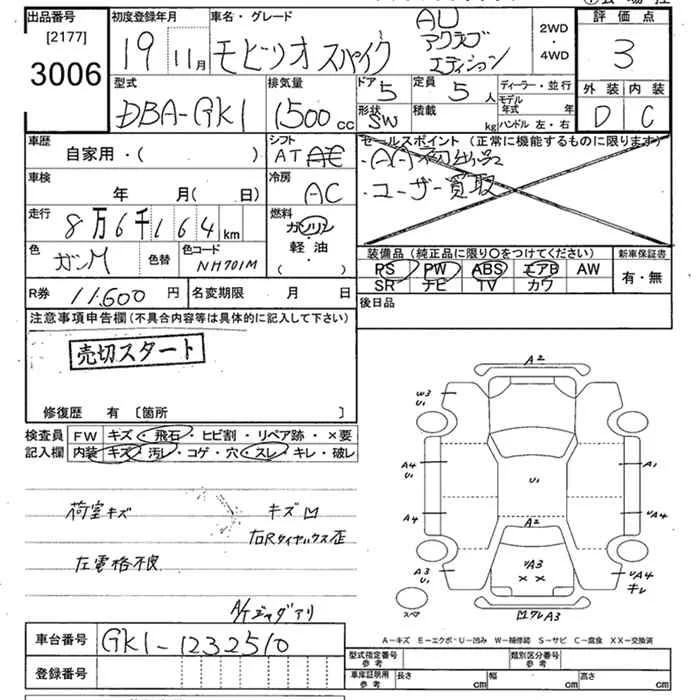 出品番号 初度登録年月 車名・グレード 評価点
[2177] 3006
19 11月 モビリオスパイク AU 2WD・4WD 3
エディション
型式 排気量 ドア 定員 ディーラー・並行 外装 内装
DBA-GK1 1500cc 5 5人 モデル年式 年 D C
形状 SW 積載 kg ハンドル 左・右
車歴 シフト セールスポイント (正常に機能するものに限ります)
自家用・( ) AT AC ・AA初出品
車検 冷房 ・ユーザー買取
年 月( 日) AC
走行 燃料
8万6千164km ガソリン
軽・油
( )
色 色替 色コード
ガンM NH701M
装備品 (純正品に限り〇をつけてください) 新車保証書
PS PW ABS エアB AW 有・無
SR ナビ TV カワ
R券 11,600円 名変期限 月 日 後日品
注意事項申告欄 (不具合内容等は具体的に記入して下さい)
売切スタート
修復歴 有 〔箇所 〕
検査員 FW キズ・飛石・ヒビ割・リペア跡・×要
記入欄 内装 キズ・汚レ・コゲ・穴・スレ・キレ・破レ
荷室キズ キズ凹
右Rタイヤハウス歪
左電格不良
A/Tジャダアリ
A2
W3 U1
A4 U1 U1 A1
A4 A2 UA4
A3 U1 UA3 UA4 キレ
××
スペア 凹ワレA3
A-キズ E-エクボ・U-凹み W-補修跡 S-サビ C-腐食 XX-交換済
車台番号 GK1-1232510
登録番号
型式指定番号 参考 類別区分番号 参考
車庫証明用 参考 長さ cm 幅 cm 高さ cm